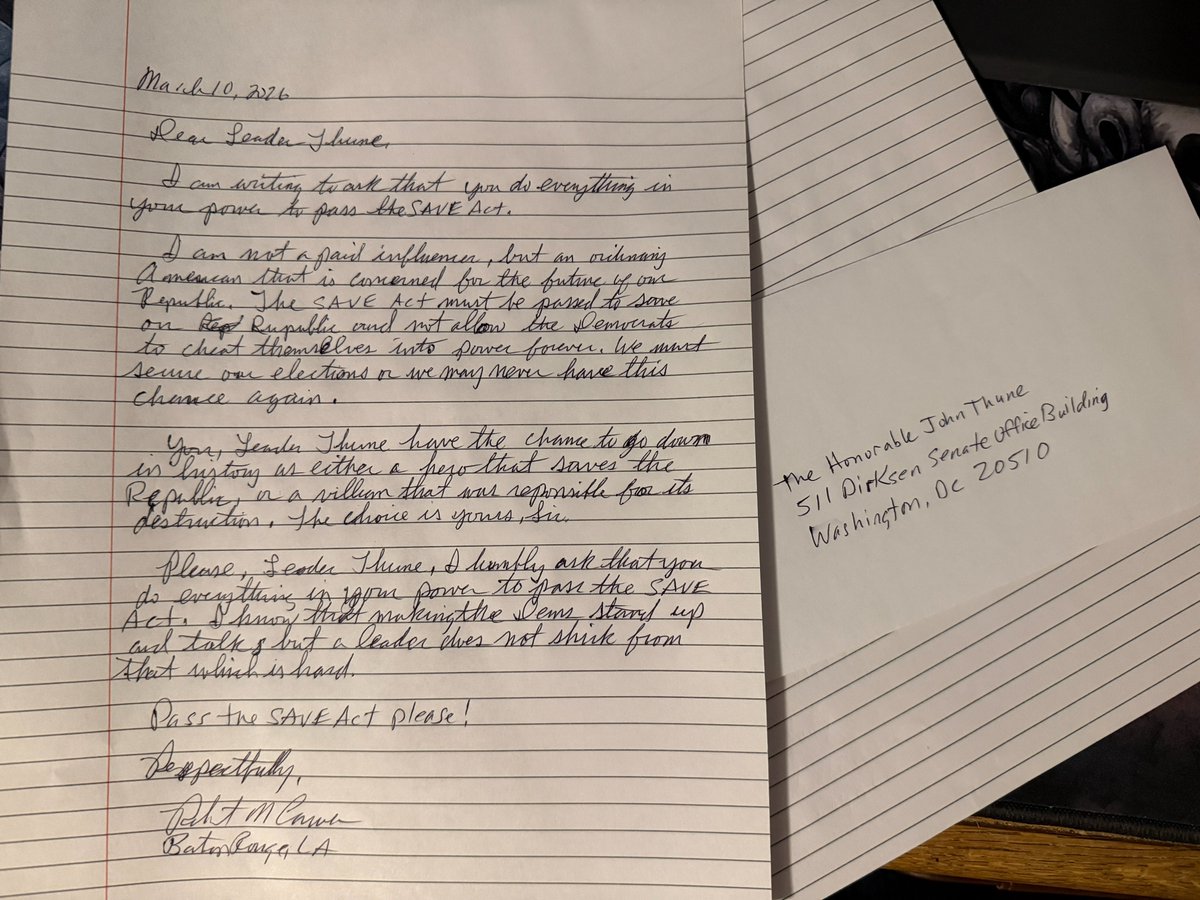 March 10, 2026
Dear Leader Thune,
I am writing to ask that you do everything in
your power to pass the SAVE Act.
I am not a paid influencer, but an ordinary
American that is concerned for the future of our
Republic. The SAVE Act must be passed to save
our Rupublic and not allow the Democrats
to cheat themselves into power forever. We must
secure our elections or we may never have this
chance again.
You, Leader Thune have the chance to go down
in history as either a hero that saves the
Republic, or a villian that was reponsible for its
destruction. The choice is yours, Sir.
Please, Leader Thune, I humbly ask that you
do everything in your power to pass the SAVE
Act. I know that making the Dems stand up
and talk, but a leader does not shirk from
that which is hard.
Pass the SAVE Act please!
Respectfully,
M
Baton Rouge, LA
The Honorable John Thune
511 Dirksen Senate Office Building
Washington, DC 20510